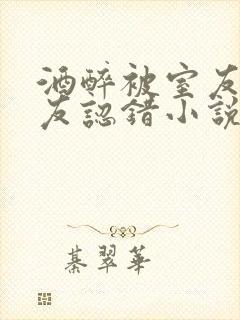 酒醉被室友
友認錯小說
綦翠華